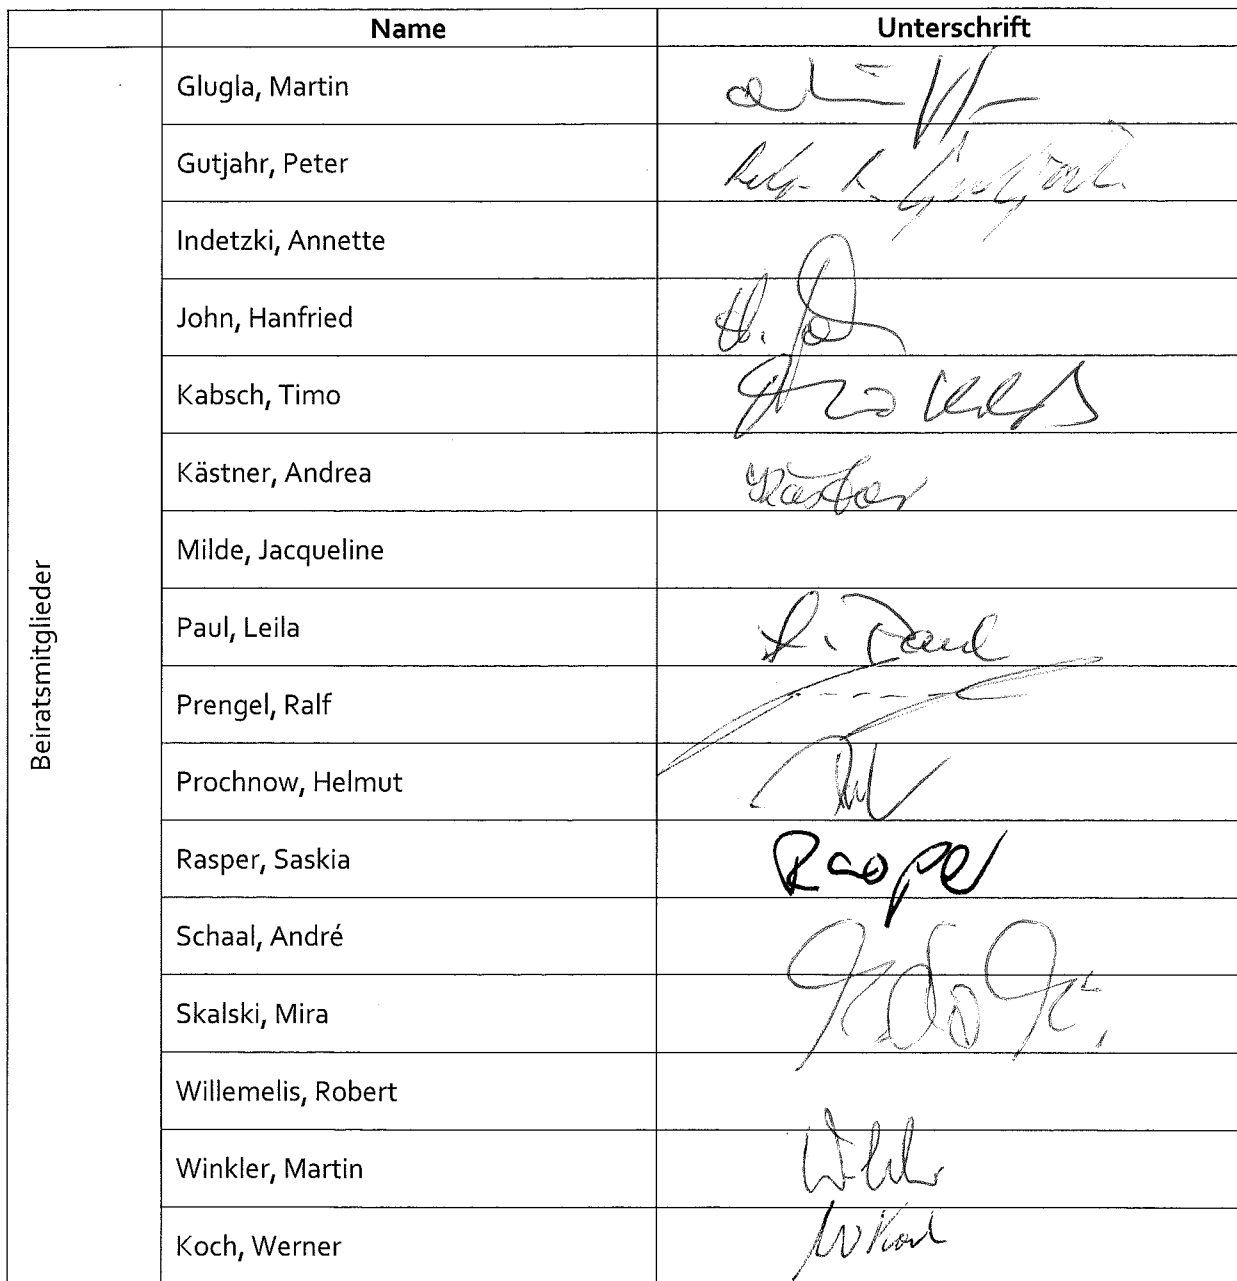 Name Unterschrift
Beiratsmitglieder
Glugla, Martin
Gutjahr, Peter Gutjahr
Indetzki, Annette
John, Hanfried H. John
Kabsch, Timo Timo
Kästner, Andrea Kästner
Milde, Jacqueline
Paul, Leila L. Paul
Prengel, Ralf
Prochnow, Helmut
Rasper, Saskia Rasper
Schaal, André
Skalski, Mira
Willemelis, Robert
Winkler, Martin
Koch, Werner W Koch